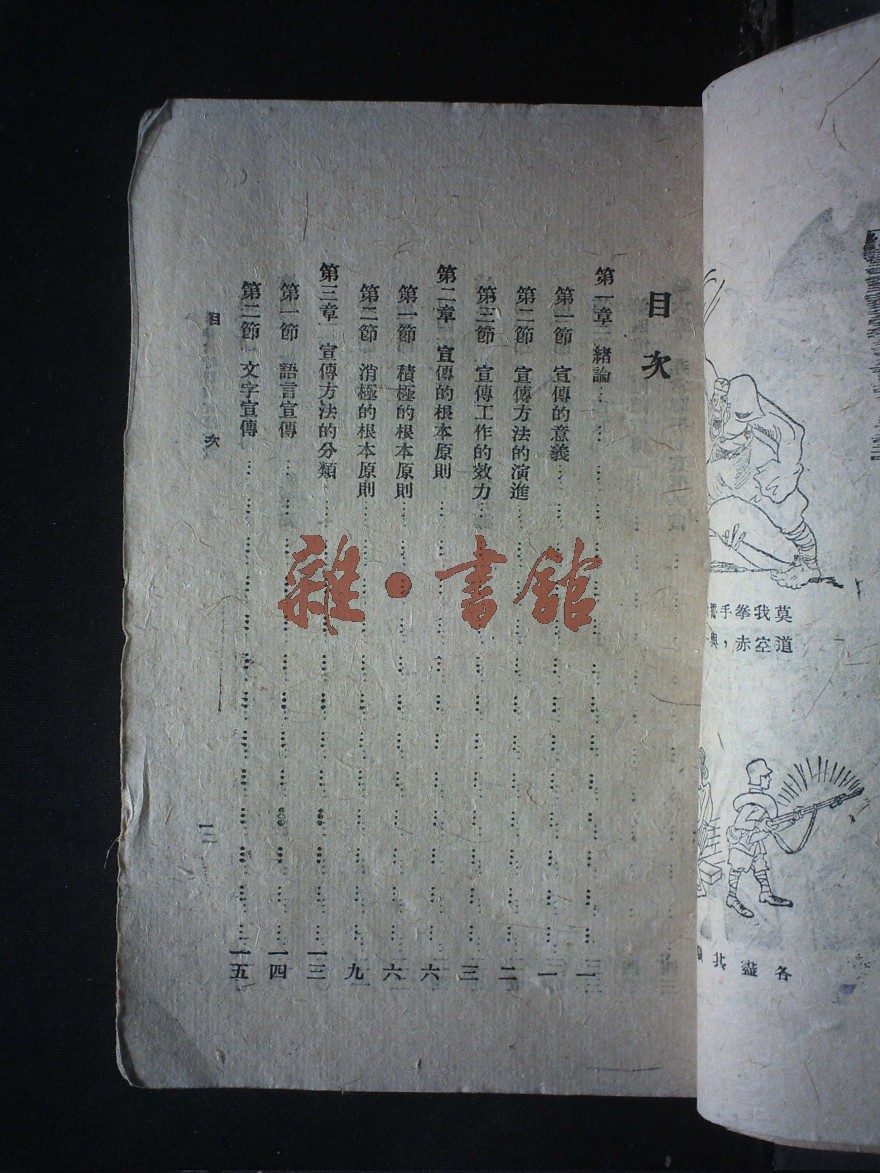 目次
第一章 緒論…………一
第一節 宣傳的意義…………一
第二節 宣傳方法的演進…………二
第三節 宣傳工作的效力…………三
第二章 宣傳的根本原則…………六
第一節 積極的根本原則…………六
第二節 消極的根本原則…………九
第三章 宣傳方法的分類…………一三
第一節 語言宣傳…………一四
第二節 文字宣傳…………一五
目 次
雜·書館
莫我拳手
道空赤，
各盡其